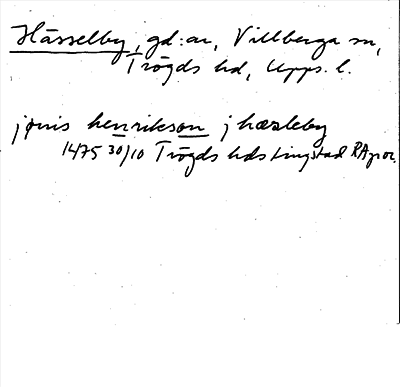 Hässelby, gd:ar, Villberga sn,
Trögds hd, Upps. l.
jönis henrikson j hæsleby
1475 30/10 Trögds hds tingstad RAp or.